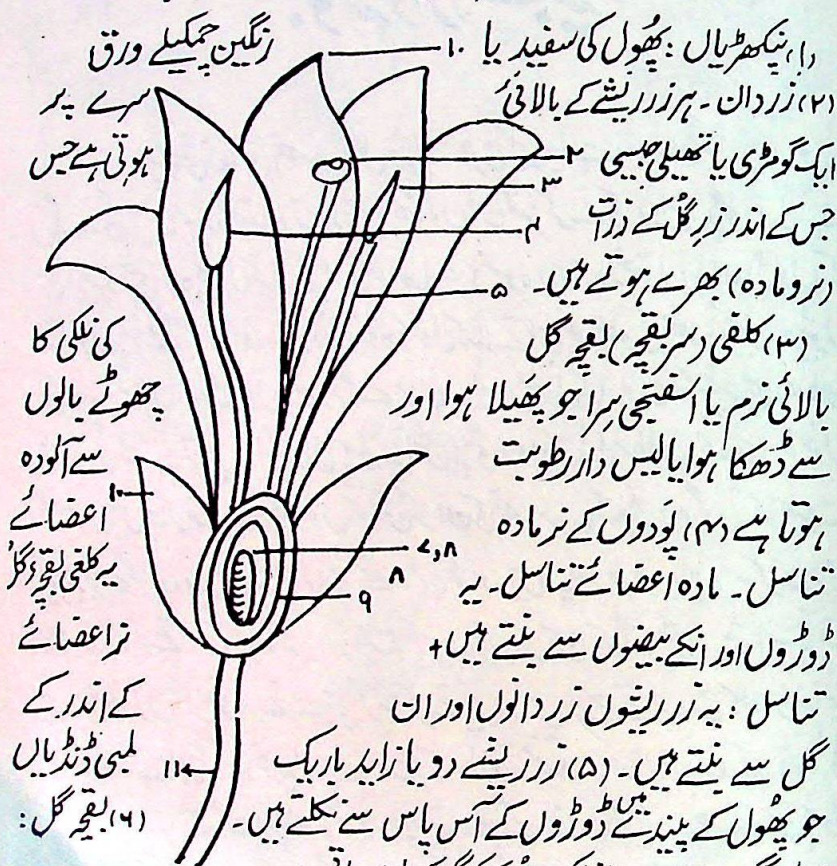 (۱) پنکھڑیاں : پھُول کی سفید یا ۱۰ رنگین چمکیلے ورق
(۲) زردان ۔ ہر زر ریشے کے بالائی سرے پر
ایک گومڑی یا تھیلی جیسی ۲ ہوتی ہے جس
۳
جس کے اندر زرِ گُل کے ذرات ۴
(نر و مادہ) بھرے ہوتے ہیں۔ ۵
(۳) کلغی (سر بقچہ) بقچہ گل کی نلکی کا
بالائی نرم یا اسفنجی سِرا جو پھَیلا ہوا اور چھوٹے بالوں
سے ڈھکا ہوا یا لیس دار رطوبت سے آلودہ
ہوتا ہے (۴) پَودوں کے نر مادہ ۱۰ اعضائے
۷،۸
تناسل ۔ مادہ اعضائے تناسل ۔ یہ ۸ ۹ یہ کلغی بقچۂ گل
ڈوڑوں اور انکے بیضوں سے بنتے ہیں+ نر اعضائے
تناسل : یہ زر ریشوں زردانوں اور ان کے اندر کے
گل سے بنتے ہیں۔ (۵) زر ریشے دو یا زاید باریک ۱۱ لمبی ڈنڈیاں
جو پھُول کے پیندے میں ڈوڑوں کے آس پاس سے نکلتے ہیں۔ (۶) بقچہ گل :